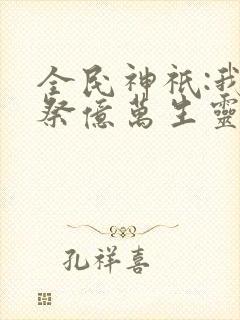 全民神祇:我
祭億萬生靈
孔祥喜